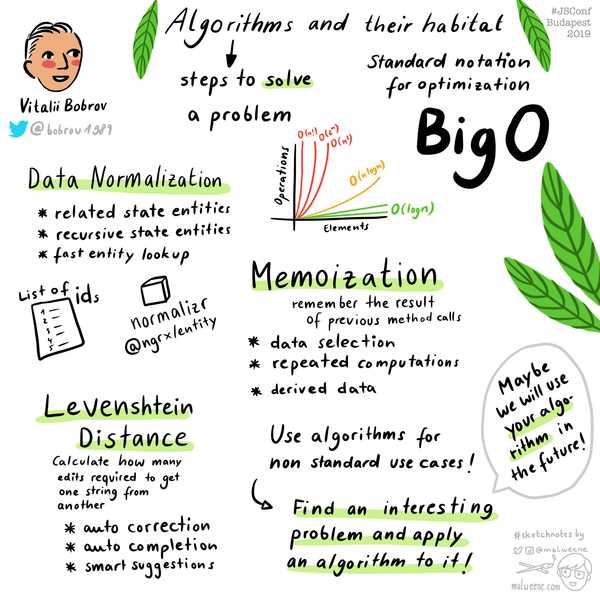 Algorithms and their habitat
#JSConf
Budapest
2019
Vitalii Bobrov
@bobrov1989
steps to solve
a problem
Standard notation
for optimization
Big O
Operations
O(n!)
O(2ⁿ)
O(n²)
O(nlogn)
O(logn)
Elements
Data Normalization
* related state entities
* recursive state entities
* fast entity lookup
List of ids
1
2
3
4
5
normalizr
@ngrx/entity
Memoization
remember the result
of previous method calls
* data selection
* repeated computations
* derived data
Levenshtein
Distance
Calculate how many
edits required to get
one string from
another
* auto correction
* auto completion
* smart suggestions
Use algorithms for
non standard use cases!
Find an interesting
problem and apply
an algorithm to it!
Maybe
we will use
your algo-
rithm in
the future!
#sketchnotes by
@malweene
malweene.com